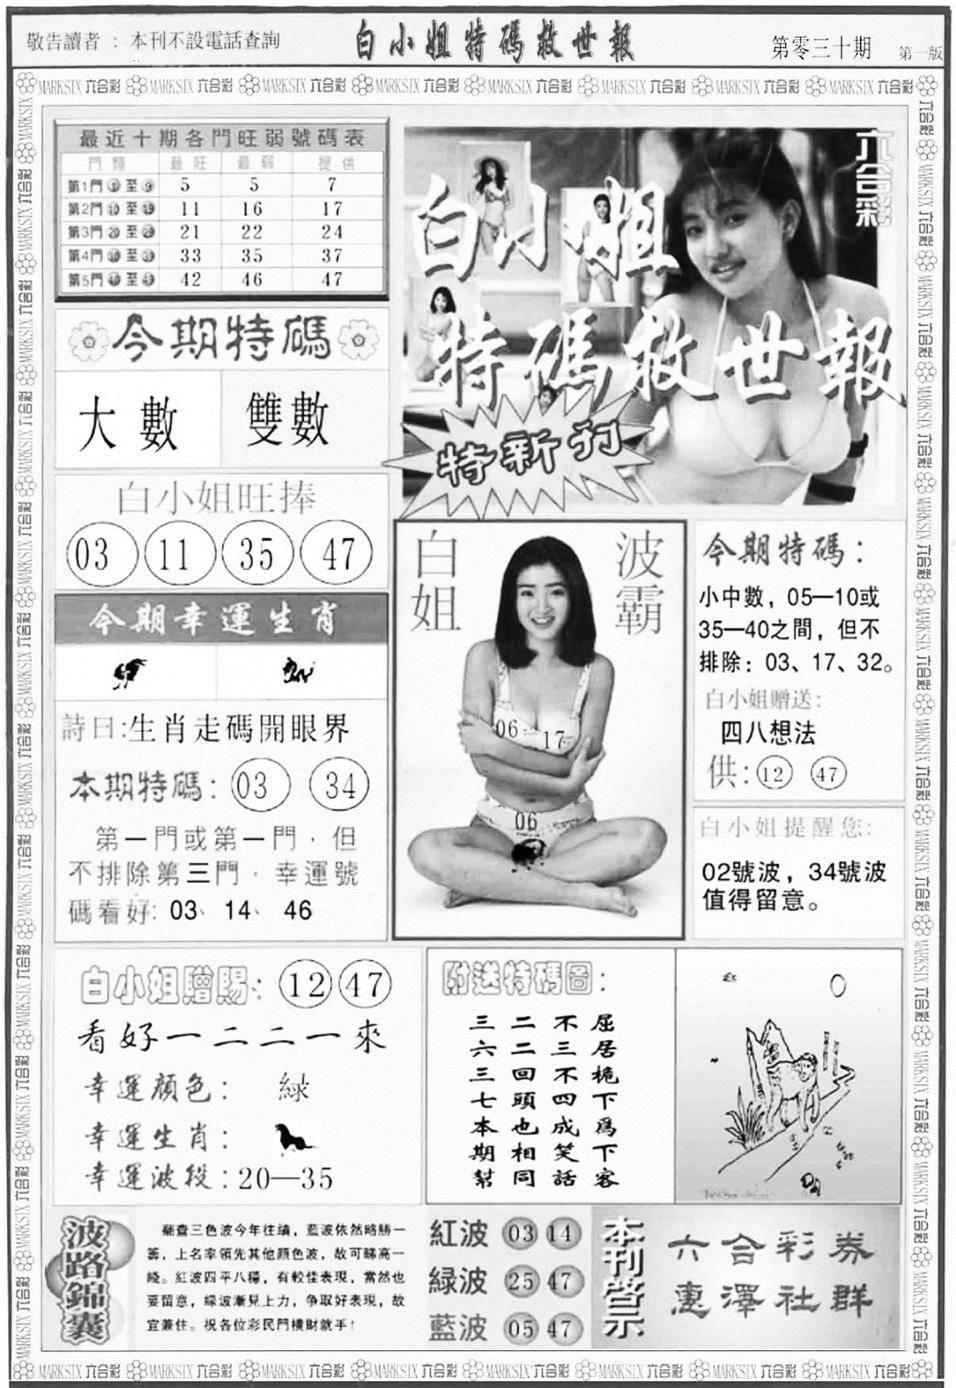 敬告讀者：本刊不設電話查詢
白小姐特碼救世報
第零三十期
第一版
MARKSIX 六合彩
最近十期各門旺弱號碼表
門類 最旺 最弱 提供
第1門 ① 至 ⑨ 5 5 7
第2門 ⑩ 至 ⑲ 11 16 17
第3門 ⑳ 至 ㉙ 21 22 24
第4門 ㉚ 至 ㊴ 33 35 37
第5門 ㊵ 至 ㊾ 42 46 47
今期特碼
大數 雙數
白小姐旺捧
03 11 35 47
今期幸運生肖
詩曰:生肖走碼開眼界
本期特碼: 03 34
第一門或第一門，但
不排除第三門，幸運號
碼看好: 03、14、46
六合彩
白小姐
特碼救世報
特新刊
白姐
波霸
06 17
06
今期特碼：
小中數，05—10或
35—40之間，但不
排除：03、17、32。
白小姐贈送:
四八想法
供: 12 47
白小姐提醒您:
02號波，34號波
值得留意。
白小姐贈賜: 12 47
看好一二二一來
幸運顏色: 緑
幸運生肖:
幸運波段:20—35
附送特碼圖:
三二不屈
六二三居
三回不桅
七頭四下
本也成爲
期相笑下
幫同話客
波路錦囊
縱查三色波今年往績，藍波依然略勝一
籌，上名率領先其他顏色波，故可睇高一
綫。紅波四平八穩，有較佳表現，當然也
要留意，緑波漸見上力，争取好表現，故
宜兼住。祝各位彩民門橫財就手！
紅波 03 14
緑波 25 47
藍波 05 47
本刊營示
六合彩券
惠澤社群